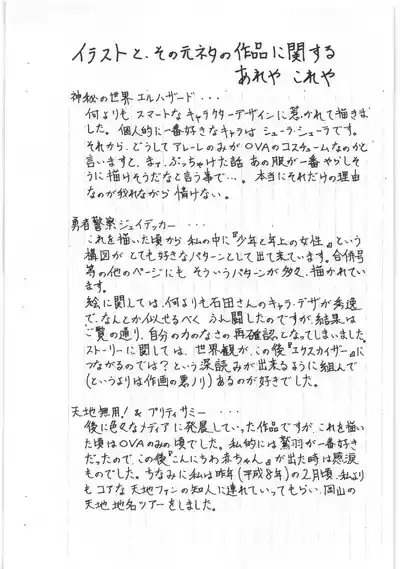 イラストと、その元ネタの作品に関する
あれや これや
神秘の世界 エルハザード・・・
何よりも スマートな キャラクターデザインに 惹かれて描きま
した。個人的に一番好きなキャラは シェーラ・シェーラです。
それから、どうして アレーレのみが OVAのコスチュームなのかと
言いますと、まァ、ぶっちゃけた話 あの服が一番やらしそ
うに描けそうだなと言う事で…。本当にそれだけの理由
なのが我れながら 情けない。
勇者警察 ジェイデッカー・・・
これを描いた頃から 私の中に『少年と年上の女性』という
構図が とても好きなパターンとして出て来ています。合併号
等の他のページにも そういうパターンが多々、描かれてい
ます。
絵に関しては、何よりも石田さんのキャラ・デザが秀逸
で、なんとか似せるべく うん闘したのですが、結果は
ご覧の通り、自分の力のなさの再確認となってしまいました。
ストーリーに関しては、世界観が、この後『エクスカイザー』に
つながるのでは？という 深読みが出来るように組んで
(というよりは作画の悪ノリ) あるのが好きでした。
天地無用！ & プリティサミー・・・
後に色々なメディアに発展していった作品ですが、これを描い
た頃はOVAのみの頃でした。私的には鷲羽が一番好き
だったので この後『こんにちわ赤ちゃん』が出た時は感涙
ものでした。ちなみに私は昨年(平成8年)の2月頃、私より
も コアな 天地ファンの知人に連れていってもらい、岡山の
天地 地名ツアーをしました。